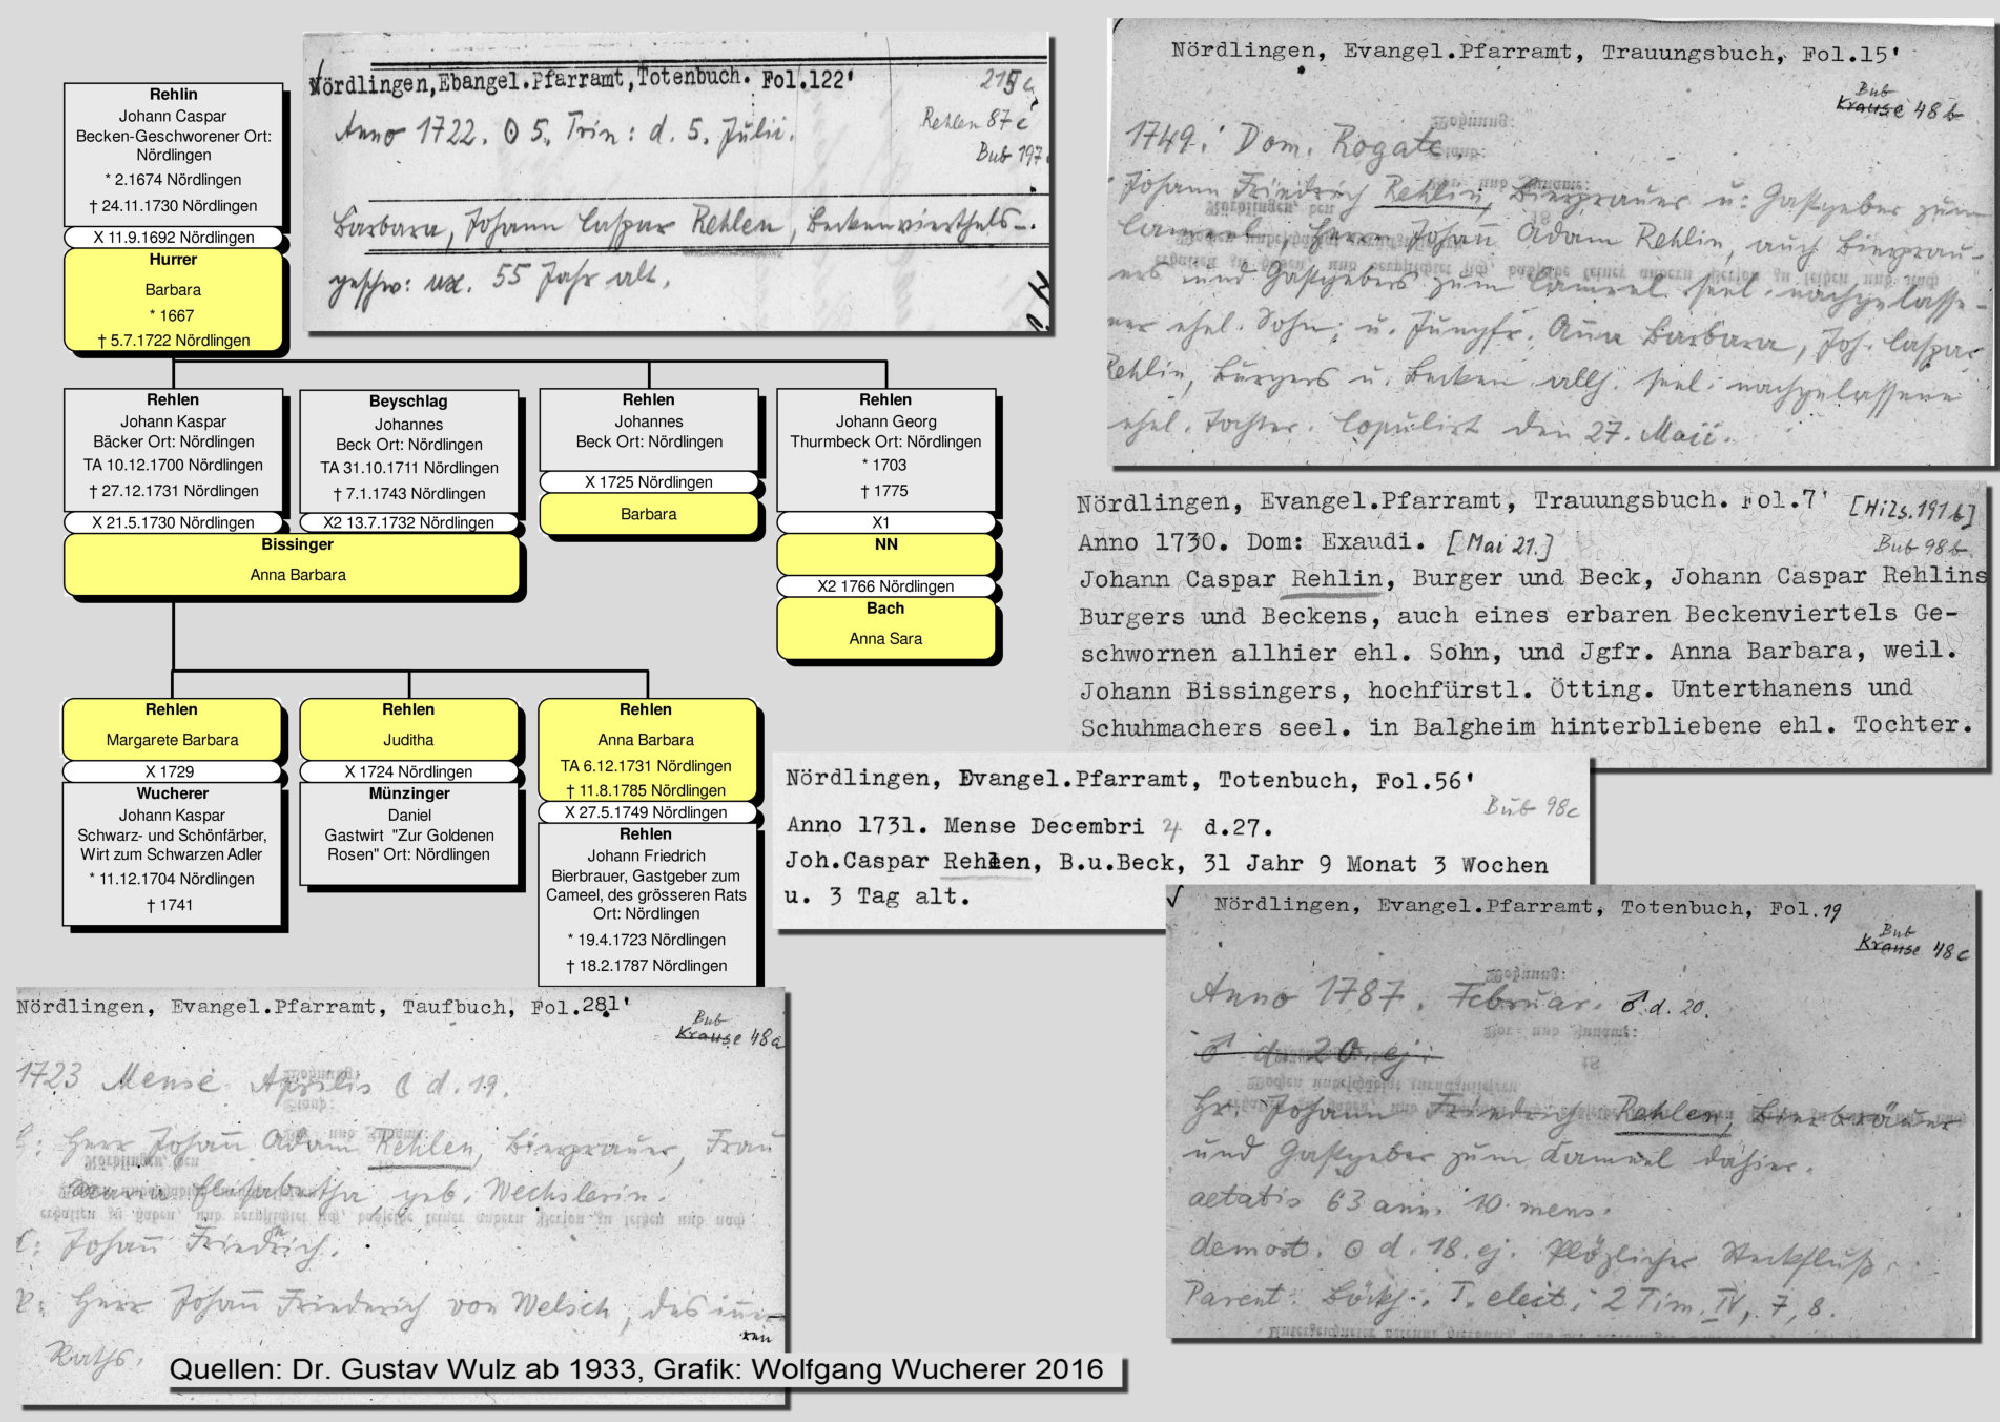 Rehlin
Johann Caspar
Becken-Geschworener Ort:
Nördlingen
* 2.1674 Nördlingen
† 24.11.1730 Nördlingen
X 11.9.1692 Nördlingen
Hurrer
Barbara
* 1667
† 5.7.1722 Nördlingen
Rehlen
Johann Kaspar
Bäcker Ort: Nördlingen
TA 10.12.1700 Nördlingen
† 27.12.1731 Nördlingen
X 21.5.1730 Nördlingen
Beyschlag
Johannes
Beck Ort: Nördlingen
TA 31.10.1711 Nördlingen
† 7.1.1743 Nördlingen
X2 13.7.1732 Nördlingen
Bissinger
Anna Barbara
Rehlen
Johannes
Beck Ort: Nördlingen
X 1725 Nördlingen
Barbara
Rehlen
Johann Georg
Thurmbeck Ort: Nördlingen
* 1703
† 1775
X1
NN
X2 1766 Nördlingen
Bach
Anna Sara
Rehlen
Margarete Barbara
X 1729
Wucherer
Johann Kaspar
Schwarz- und Schönfärber,
Wirt zum Schwarzen Adler
* 11.12.1704 Nördlingen
† 1741
Rehlen
Juditha
X 1724 Nördlingen
Münzinger
Daniel
Gastwirt "Zur Goldenen
Rosen" Ort: Nördlingen
Rehlen
Anna Barbara
TA 6.12.1731 Nördlingen
† 11.8.1785 Nördlingen
X 27.5.1749 Nördlingen
Rehlen
Johann Friedrich
Bierbrauer, Gastgeber zum
Cameel, des grösseren Rats
Ort: Nördlingen
* 19.4.1723 Nördlingen
† 18.2.1787 Nördlingen
Nördlingen,Ebangel.Pfarramt,Totenbuch. Fol.122'
Rehlen 87c
Bub 197
Anno 1722. ⊙ 5. Trin: d. 5. Julii.
Barbara, Johann Caspar Rehlen, Beckenvierthels-
geschw: ux. 55 Jahr alt.
Nördlingen, Evangel.Pfarramt, Trauungsbuch, Fol.15'
Bub
Krause 48b
1749. Dom. Rogate.
Johann Friedrich Rehlin, Bierbrauer u: Gastgeber zum
Cameel, Herrn Johan̄ Adam Rehlin, auch Bierbrau-
ers und Gastgebers zum Cameel seel. nachgelasse-
ner ehel. Sohn; u. Jungfr. Anna Barbara, Joh. Caspar
Rehlin, Burgers u. Becken allh. seel. nachgelassene
ehel. Tochter. Copulirt den 27. Maii.
Nördlingen, Evangel.Pfarramt, Trauungsbuch. Fol.7' [Hils.191b]
Anno 1730. Dom: Exaudi. [Mai 21.] Bub 98b
Johann Caspar Rehlin, Burger und Beck, Johann Caspar Rehlins
Burgers und Beckens, auch eines erbaren Beckenviertels Ge-
schwornen allhier ehl. Sohn, und Jgfr. Anna Barbara, weil.
Johann Bissingers, hochfürstl. Ötting. Unterthanens und
Schuhmachers seel. in Balgheim hinterbliebene ehl. Tochter.
Nördlingen, Evangel.Pfarramt, Totenbuch, Fol.56'
Bub 98c
Anno 1731. Mense Decembri ♃ d.27.
Joh.Caspar Rehlen, B.u.Beck, 31 Jahr 9 Monat 3 Wochen
u. 3 Tag alt.
Nördlingen, Evangel.Pfarramt, Totenbuch, Fol.19
Bub
Krause 48c
Anno 1787. Februar. ♂ d. 20.
♂ d. 20. ej.
Hr. Johann Friedrich Rehlen, Bierbräuer
und Gastgeber zum Kameel dahier.
aetatis 63 ann. 10 mens.
demort. ⊙ d. 18. ej. Plözlicher Steckfluß.
Parent. T. elect. 2 Tim. IV, 7, 8.
Nördlingen, Evangel.Pfarramt, Taufbuch, Fol.281'
Bub
Krause 48a
1723 Mense Aprilis d. 19.
Herr Johan̄ Adam Rehlen, Bierbrauer, Frau
Maria Elisabetha geb. Wechslerin.
Johan̄ Friedrich.
Herr Johan̄ Friederich von Welsch, des in̄e-
ren
Raths.
Quellen: Dr. Gustav Wulz ab 1933, Grafik: Wolfgang Wucherer 2016